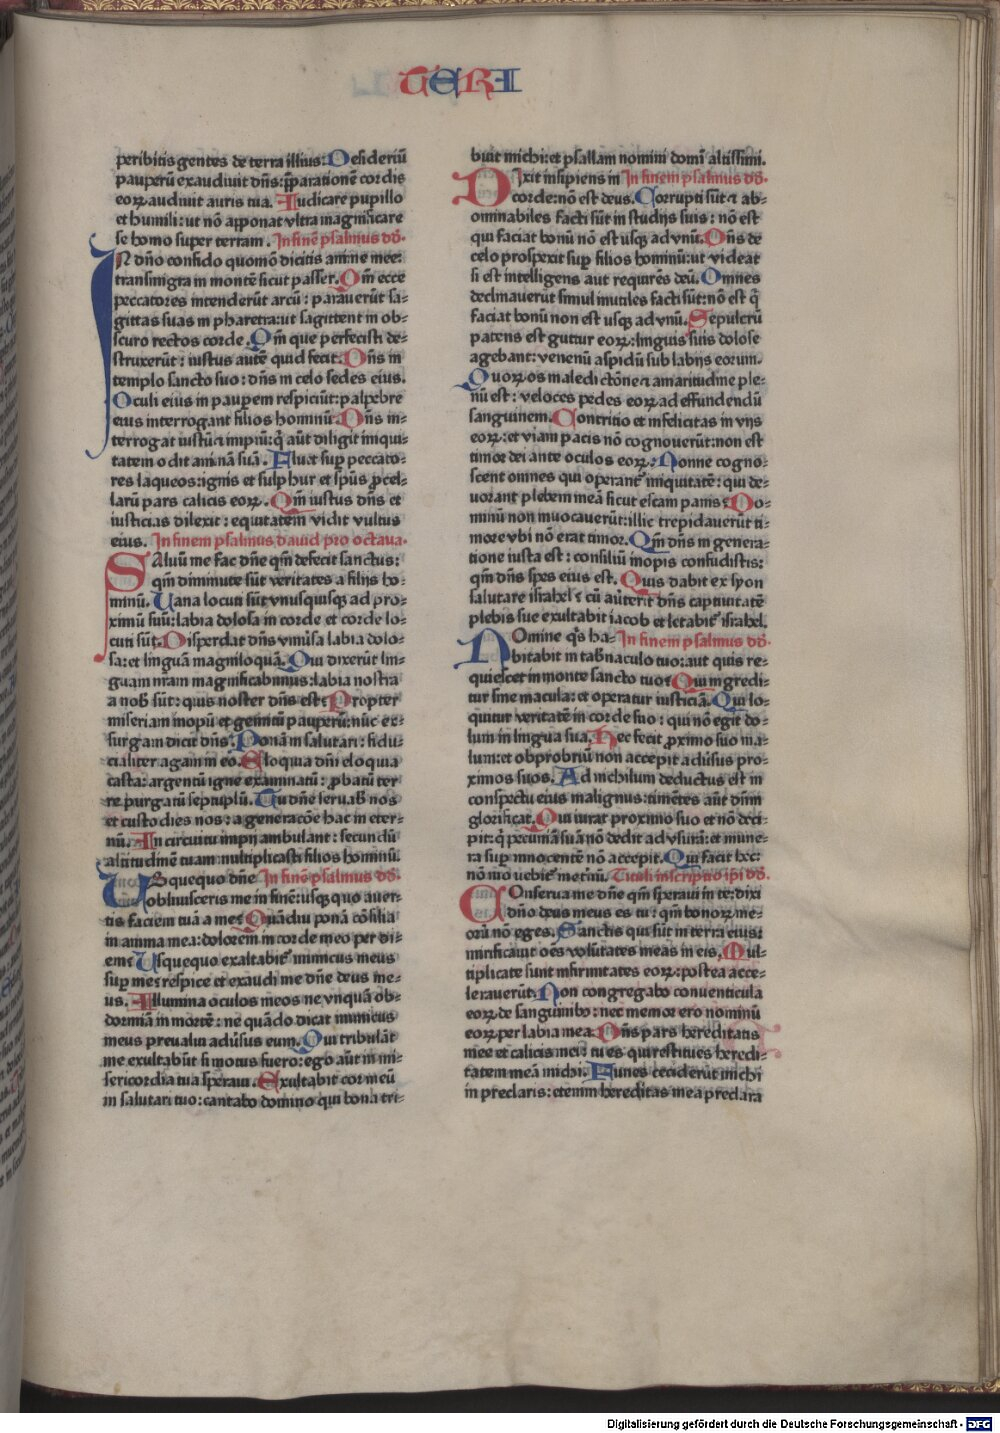 TERI
peribitis gentes de terra illius: Desideriū
pauperū exaudiuit dn̄s: p̄paratione͞ cordis
eoꝝ audiuit auris tua. Iudicare pupillo
et humili: ut nō apponat vltra magnificare
se homo super terram. In fine͞ psalmus dd̄.
IN dn̄o confido quomō dicitis anime mee:
transmigra in monte͞ sicut passer. Qm̄ ecce
peccatores intenderūt arcū: parauerūt sa-
gittas suas in pharetra: ut sagittent in ob-
scuro rectos corde. Qm̄ que perfecisti de-
struxerūt: iustus aute͞ quid fecit. Dn̄s in
templo sancto suo: dn̄s in celo sedes eius.
Oculi eius in paupem respiciūt: palpebre
eius interrogant filios hominū. Dn̄s in-
terrogat iustū ⁊ impiū: q̄ aūt diligit iniqui-
tatem odit animā suā. Pluet sup̄ peccato-
res laqueos: ignis et sulphur et sp̄us p̄cel-
larū pars calicis eoꝝ. Qm̄ iustus dn̄s et
iusticias dilexit: equitatem vidit vultus
eius. In finem psalmus dauid pro octaua.
Saluū me fac dn̄e qm̄ defecit sanctus:
qm̄ diminute sūt veritates a filijs ho-
minū. Uana locuti sūt vnusquisqꝫ ad pro-
ximū suū: labia dolosa in corde et corde lo-
cuti sūt. Disperdat dn̄s vniūsa labia dolo-
sa: et linguā magniloquā. Qui dixerūt lin-
guam nr̄am magnificabimus: labia nostra
a nob̄ sūt: quis noster dn̄s est: Propter
miseriam inopū et gemitū pauperū: nūc ex-
surgam dicit dn̄s. Ponā in salutari: fidu-
cialiter agam in eo. Eloquia dn̄i eloquia
casta: argentū igne examinatū: p̄batū ter-
re purgatū septuplū. Tu dn̄e seruab̄ nos
et custodies nos: a generacōe hac in eter-
nū. In circuitu impij ambulant: secundū
altitudine͞ tuam multiplicasti filios hominū.
Usquequo dn̄e In fine͞ psalmus dd̄.
obliuisceris me in fine͞: usqꝫquo auer-
tis faciem tuā a me: Quādiu ponā cōsilia
in anima mea: dolorem in corde meo per di-
em: Usquequo exaltabit̄ inimicus meus
sup̄ me: respice et exaudi me dn̄e deus me-
us. Illumina oculos meos ne vnquā ob-
dormiā in morte͞: ne quādo dicat inimicus
meus preualui aduūsus eum. Qui tribulāt
me exultabūt si motus fuero: ego aūt in mi-
sericordia tua speraui. Exultabit cor meū
in salutari tuo: cantabo domino qui bona tri-
buit michi: et psallam nomini domī altissimi.
Dixit insipiens in In finem psalmus dd̄.
corde: nō est deus. Corrupti sūt ⁊ ab-
ominabiles facti sūt in studijs suis: nō est
qui faciat bonū nō est usqꝫ ad vnū. Dn̄s de
celo prospexit sup̄ filios hominū: ut videat
si est intelligens aut requirēs deū. Omnes
declinauerūt simul inutiles facti sūt: nō est q̄
faciat bonū non est usqꝫ ad vnū. Sepulcrū
patens est guttur eoꝝ: linguis suis dolose
agebant: venenū aspidū sub labijs eorum.
Quorꝝ os maledictōne ⁊ amaritudine ple-
nū est: veloces pedes eoꝝ ad effundendū
sanguinem. Contritio et infelicitas in vijs
eoꝝ: et viam pacis nō cognouerūt: non est
timor dei ante oculos eoꝝ: Nonne cogno-
scent omnes qui operant̄ iniquitate͞: qui de-
uorant plebem meā sicut escam panis: Do-
minū non inuocauerūt: illic trepidauerūt ti-
more vbi nō erat timor. Qm̄ dn̄s in genera-
tione iusta est: consiliū inopis confudistis:
qm̄ dn̄s spes eius est. Quis dabit ex syon
salutare israhel: cū auerterit dn̄s captiuitate͞
plebis sue exultabit iacob et letabit̄ israhel.
Domine qⁱs ha- In finem psalmus dd̄.
bitabit in tab̄naculo tuo: aut quis re-
quiescet in monte sancto tuo: Qui ingredi-
tur sine macula: et operatur iusticiā. Qui lo-
quitur veritate͞ in corde suo: qui nō egit do-
lum in lingua sua. Nec fecit p̄ximo suo ma-
lum: et obprobriū non accepit aduūsus pro-
ximos suos. Ad nichilum deductus est in
conspectu eius malignus: timētes aūt dn̄m
glorificat. Qui iurat proximo suo et nō deci-
pit: q̄ pecuniā suā nō dedit ad vsurā: et mune-
ra sup̄ innocente͞ nō accepit. Qui facit hec:
nō mouebit̄ in et̄nū. Tituli inscriptio ip̄i dd̄.
Conserua me dn̄e qm̄ speraui in te: dixi
dn̄o deus meus es tu: qm̄ bonoꝝ me-
orū nō eges. Sanctis qui sūt in terra eius:
mirificauit oēs volūtates meas in eis. Mul-
tiplicate sunt infirmitates eoꝝ: postea acce-
lerauerūt. Non congregabo conuenticula
eoꝝ de sanguinibꝰ: nec memor ero nominū
eoꝝ per labia mea. Dn̄s pars hereditatis
mee et calicis mei: tu es qui restitues heredi-
tatem meā michi. Funes ceciderūt michi
in preclaris: etenim hereditas mea preclara
Digitalisierung gefördert durch die Deutsche Forschungsgemeinschaft - DFG